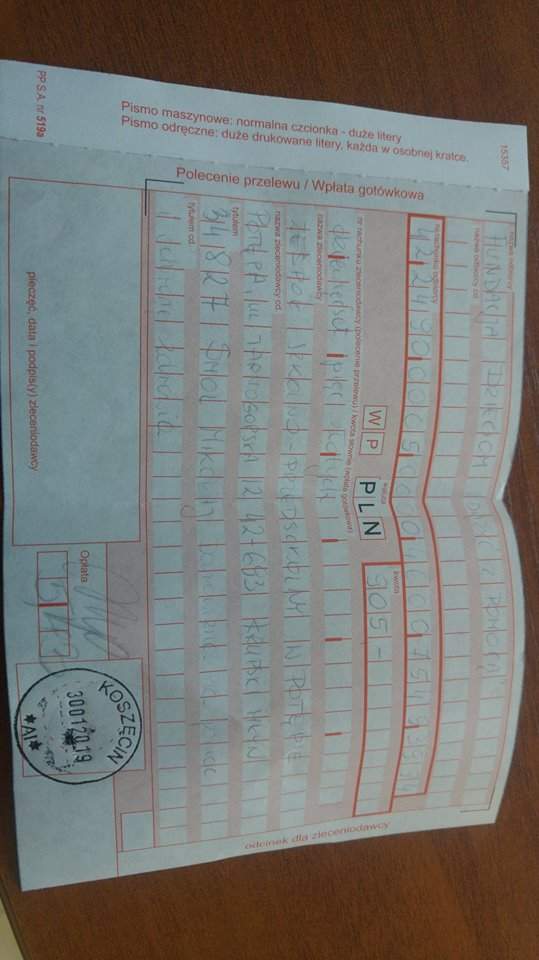 15357
Pismo maszynowe: normalna czcionka - duże litery
Pismo odręczne: duże drukowane litery, każda w osobnej kratce.
PP S.A. nr 519a
Polecenie przelewu / Wpłata gotówkowa
nazwa odbiorcy
FUNDACJA DZIECIOM POMOC"
nazwa odbiorcy cd.
nr rachunku odbiorcy
42 2490 0005 0000 4600 7549 3994
waluta
kwota
W P PLN 905 -
nr rachunku zleceniodawcy (polecenie przelewu) / kwota słownie (wpłata gotówkowa)
dziewięćset pięć złotych
nazwa zleceniodawcy
ZESPÓŁ SZKOLNO-PRZEDSZKOLNY W POTĘPIE
nazwa zleceniodawcy cd.
POTĘPA, UL. TARNOGÓRSKA 12 42-693
tytułem
34827
tytułem cd.
i
pieczęć, data i podpis(y) zleceniodawcy
Opłata
KOSZĘCIN
30012019
*AI*
odcinek dla zleceniodawcy